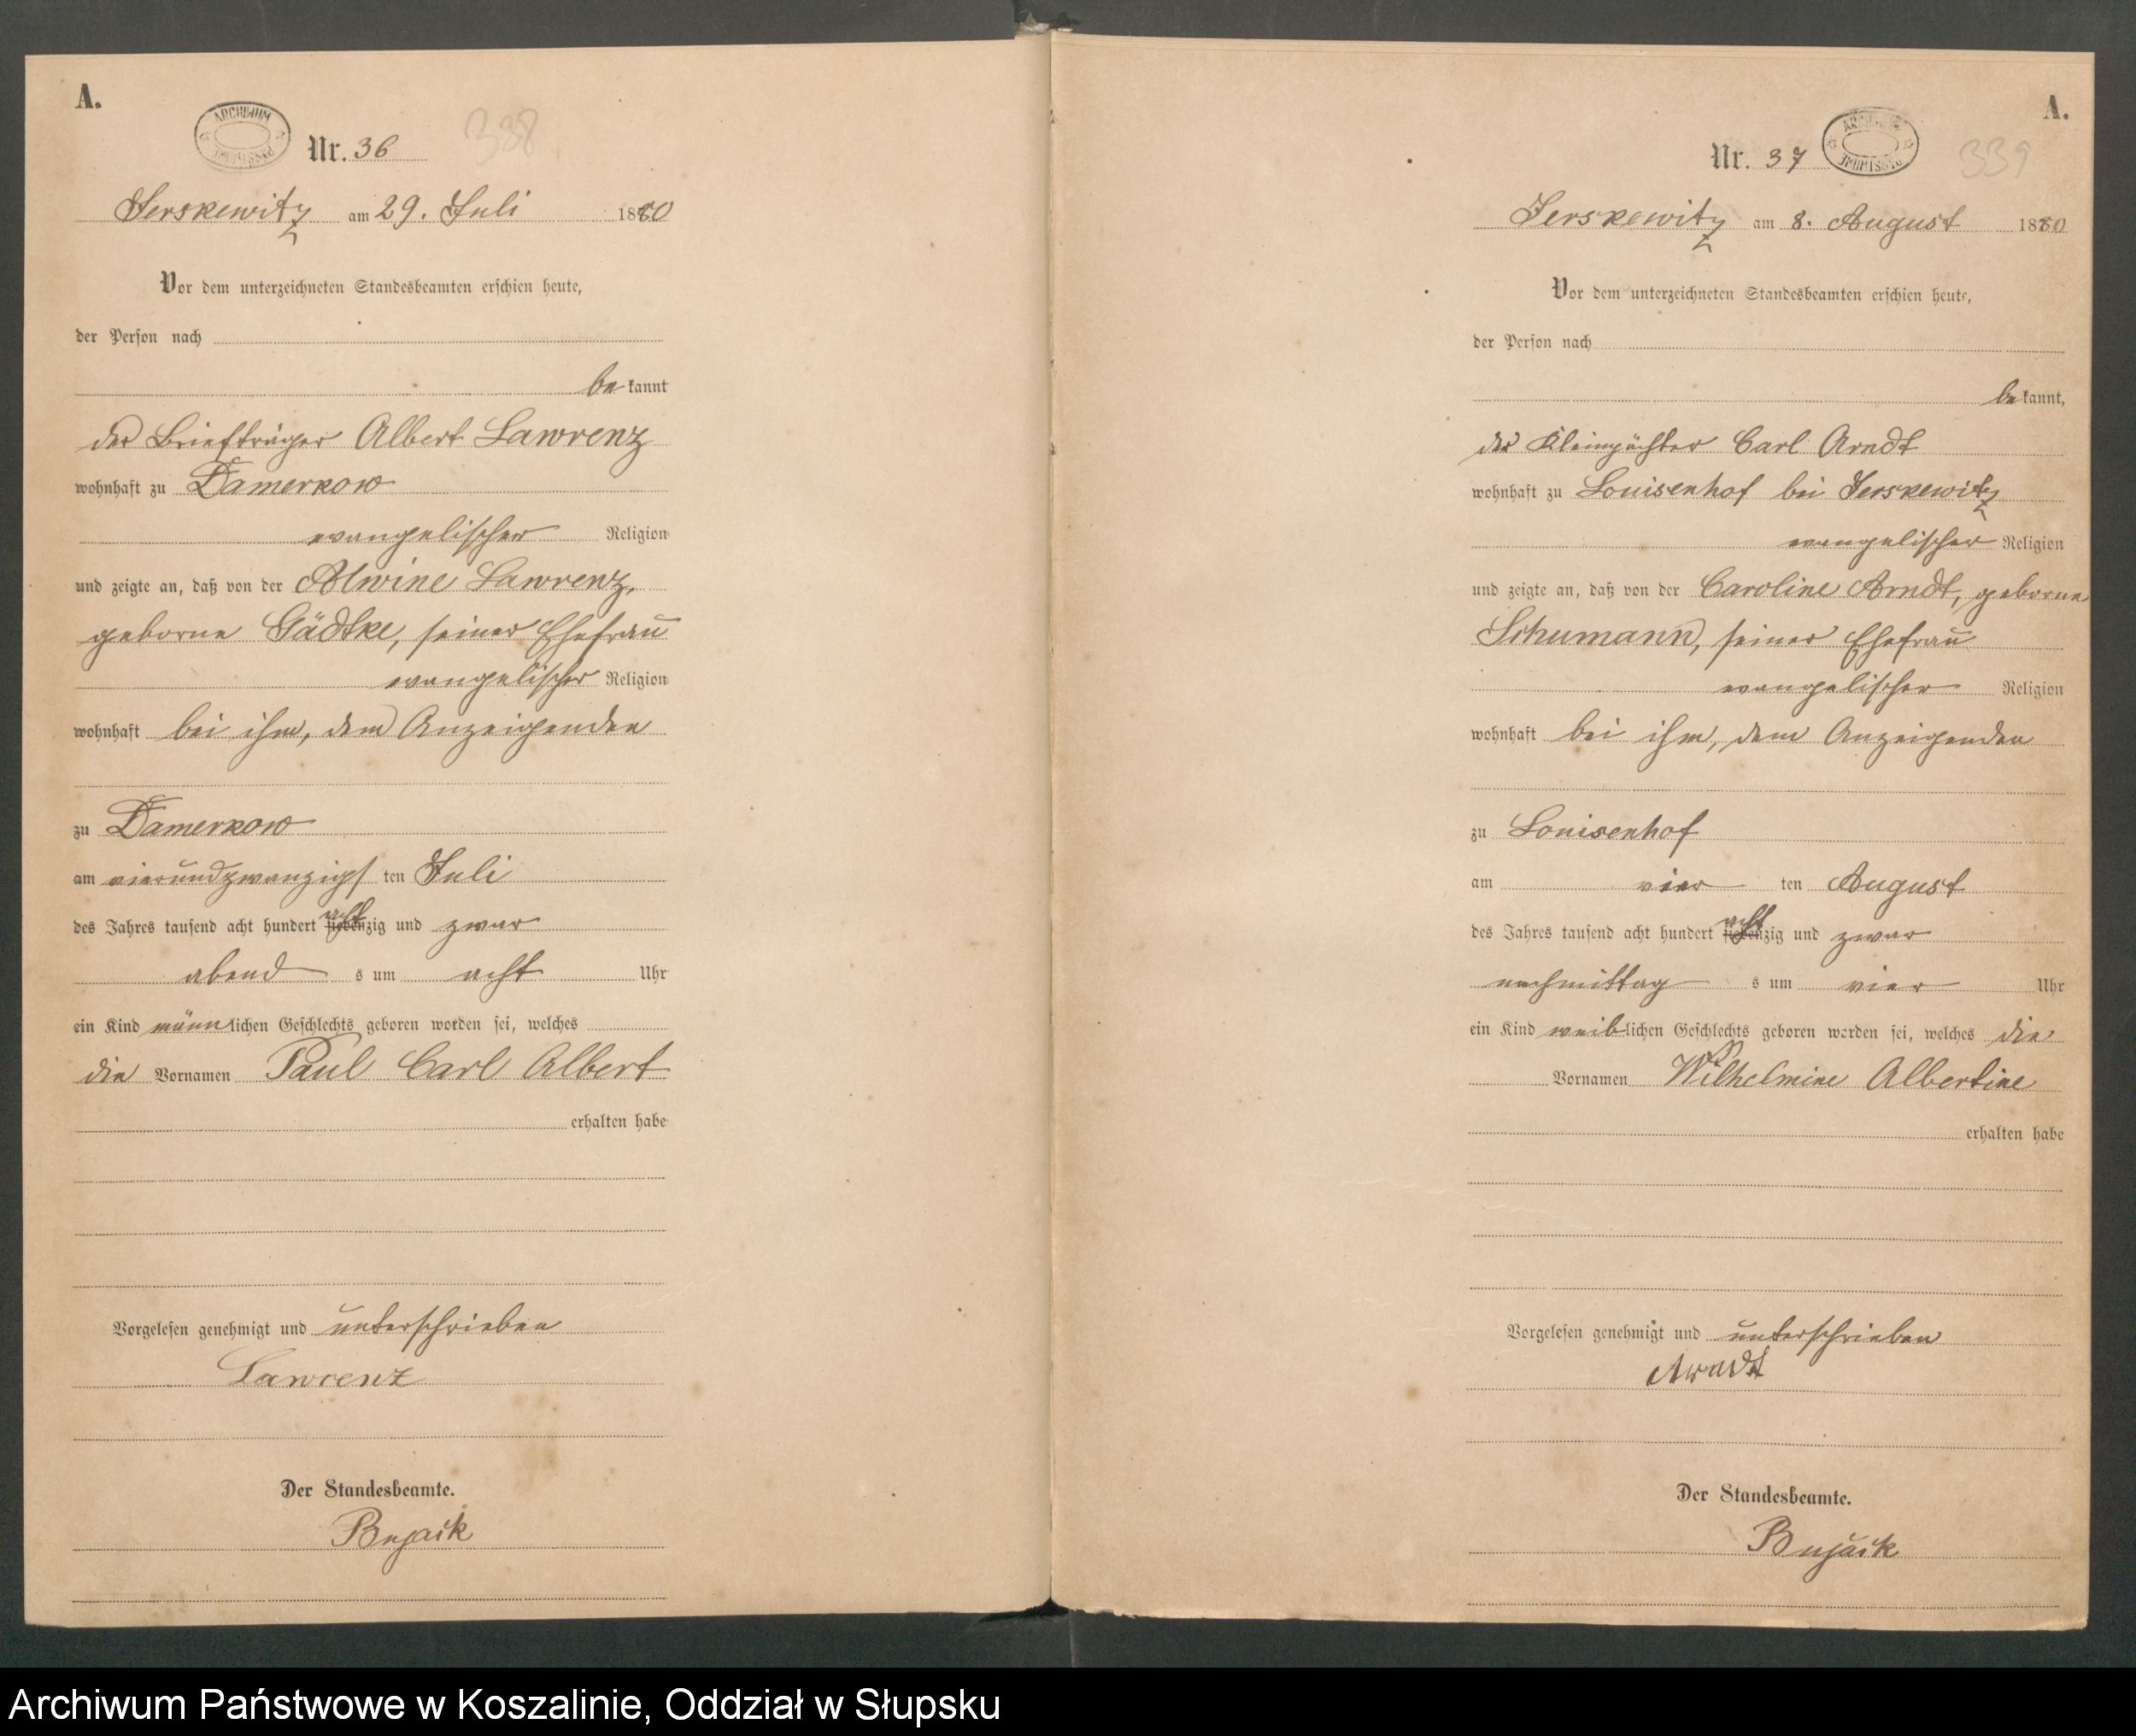 A.
ARCHIWUM
Nr. 36
338
Jerskewitz am 29. Juli 1880
Vor dem unterzeichneten Standesbeamten erschien heute,
der Person nach
be kannt
der Briefträger Albert Lawrenz
wohnhaft zu Damerkow
evangelischer Religion
und zeigte an, daß von der Alwine Lawrenz,
geborne Gädtke, seiner Ehefrau
evangelischer Religion
wohnhaft bei ihm, dem Anzeigenden
zu Damerkow
am vierundzwanzigs ten Juli
des Jahres tausend acht hundert siebenzig acht und zwar
abend s um acht Uhr
ein Kind männlichen Geschlechts geboren worden sei, welches
die Vornamen Paul Carl Albert
erhalten habe
Vorgelesen genehmigt und unterschrieben
Lawrenz
Der Standesbeamte.
Bujack
A.
Nr. 37
339
Jerskewitz am 8. August 1880
Vor dem unterzeichneten Standesbeamten erschien heute,
der Person nach
be kannt,
der Kleinpächter Carl Arndt
wohnhaft zu Louisenhof bei Jerskewitz
evangelischer Religion
und zeigte an, daß von der Caroline Arndt, geborne
Schumann, seiner Ehefrau
evangelischer Religion
wohnhaft bei ihm, dem Anzeigenden
zu Louisenhof
am vier ten August
des Jahres tausend acht hundert siebenzig acht und zwar
nachmittag s um vier Uhr
ein Kind weiblichen Geschlechts geboren worden sei, welches die
Vornamen Wilhelmine Albertine
erhalten habe
Vorgelesen genehmigt und unterschrieben
Arndt
Der Standesbeamte.
Bujack
Archiwum Państwowe w Koszalinie, Oddział w Słupsku